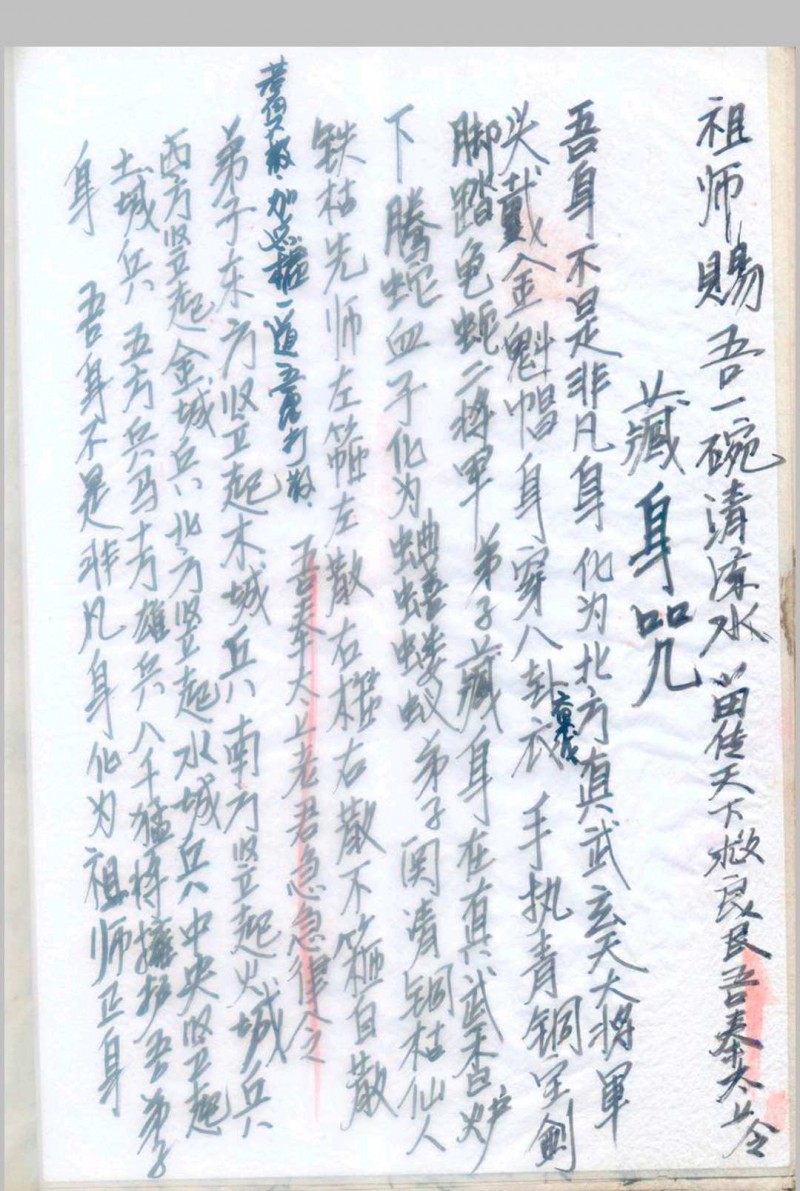 祖师賜吾一碗清凉水苗传天下救良民吾奉太上令
藏身咒
吾身不是非凡身化为北方真武玄天大将軍
头戴金魁帽身穿八卦衣手执青铜宝劍
脚踏龟蛇二将軍 弟子藏身在真武香炉
下腾蛇血子化为蝼蚁弟子闵清铜枯仙人
铁枯先师左箍左散右箍右散不箍自散
道
吾奉太上老君急急律令
弟子东方竖起木城兵南方竖起火城兵
西方竖起金城兵北方竖起水城兵中央竖起
土城兵 五方兵马十方雄兵八千猛将擁护吾弟子
身 吾身不是非凡身化为祖师正身